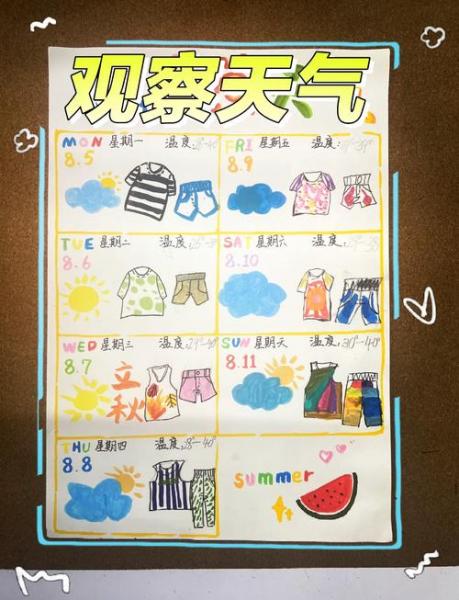 观察天气
MON 星期一 温度:
8.5
FRI 星期五 温度:
8.9
TUE 星期二 温度:
8.6
SAT 星期六 温度:
8.10
WED 星期三 温度:
8.7
立秋
SUN 星期天 温度:30°-40°
8.11
THU 星期四 温度:
8.8
summer